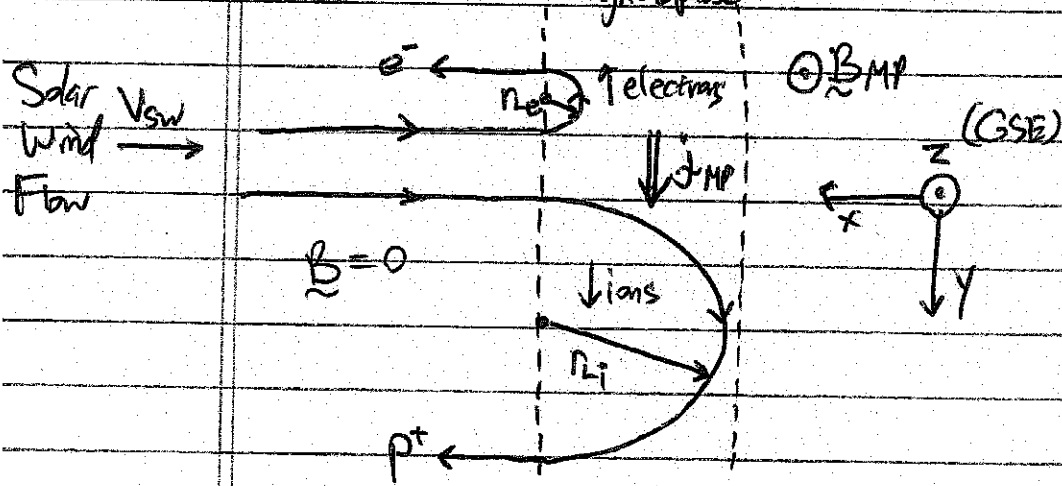 e⁻
Solar
Wind
Flow
V_SW
r_Le
↑ electrons
⊙ B_MP
(GSE)
j_MP
Z
x
y
B = 0
↓ ions
r_Li
p⁺